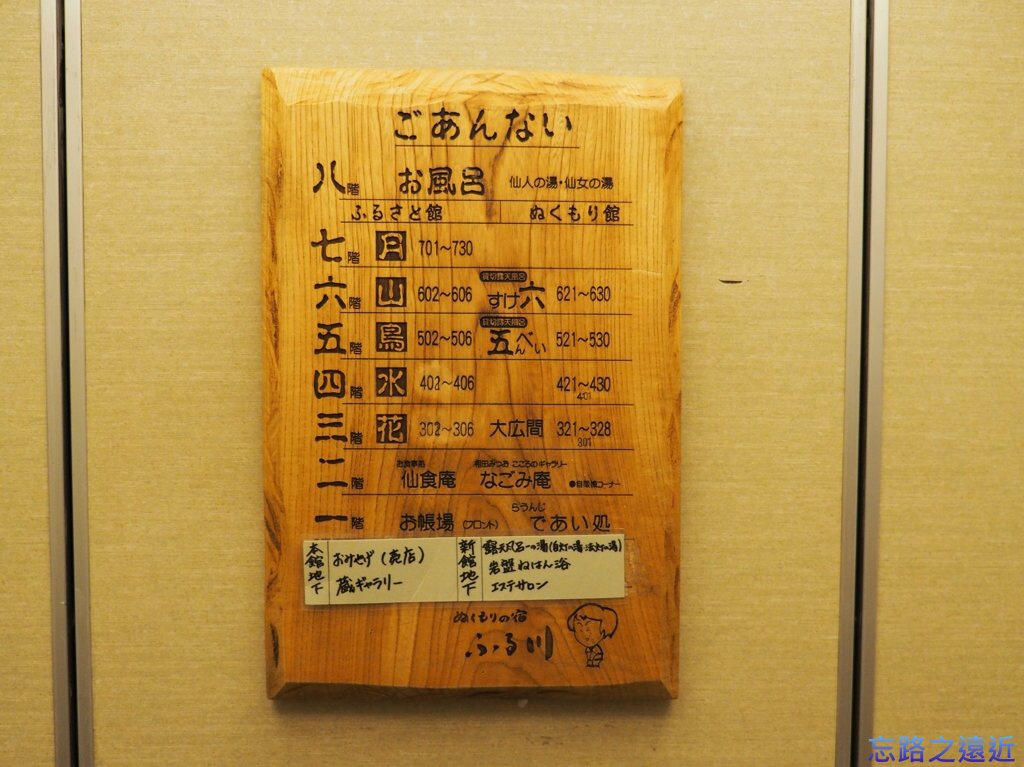 ごあんない
八階 お風呂 仙人の湯・仙女の湯
ふるさと館 ぬくもり館
七階 月 701～730
貸切露天風呂
六階 山 602～606 すけ六 621～630
貸切露天風呂
五階 鳥 502～506 五べんい 521～530
四階 水 402～406 421～430
401
三階 花 302～306 大広間 321～328
301
お食事処 相田みつを こころのギャラリー
二階 仙食庵 なごみ庵 ●自販機コーナー
らうんじ
一階 お帳場(フロント) であい処
本館地下 おみやげ(売店) 新館地下 露天風呂一の湯
蔵ギャラリー 岩盤ねはん浴
エステサロン
ぬくもりの宿
ふる川
忘路之遠近